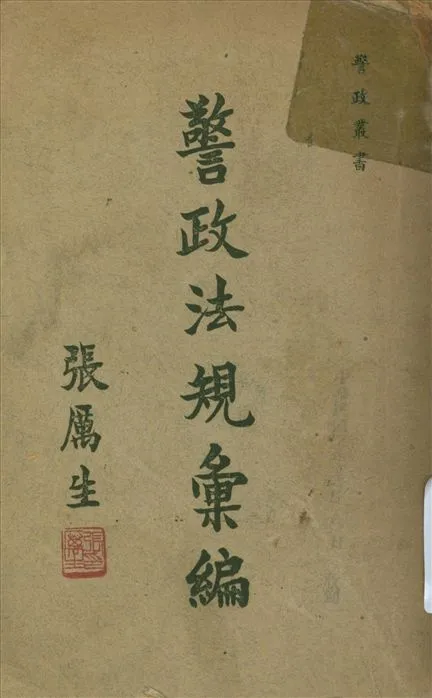 警政叢書
警政法規彙編
張厲生